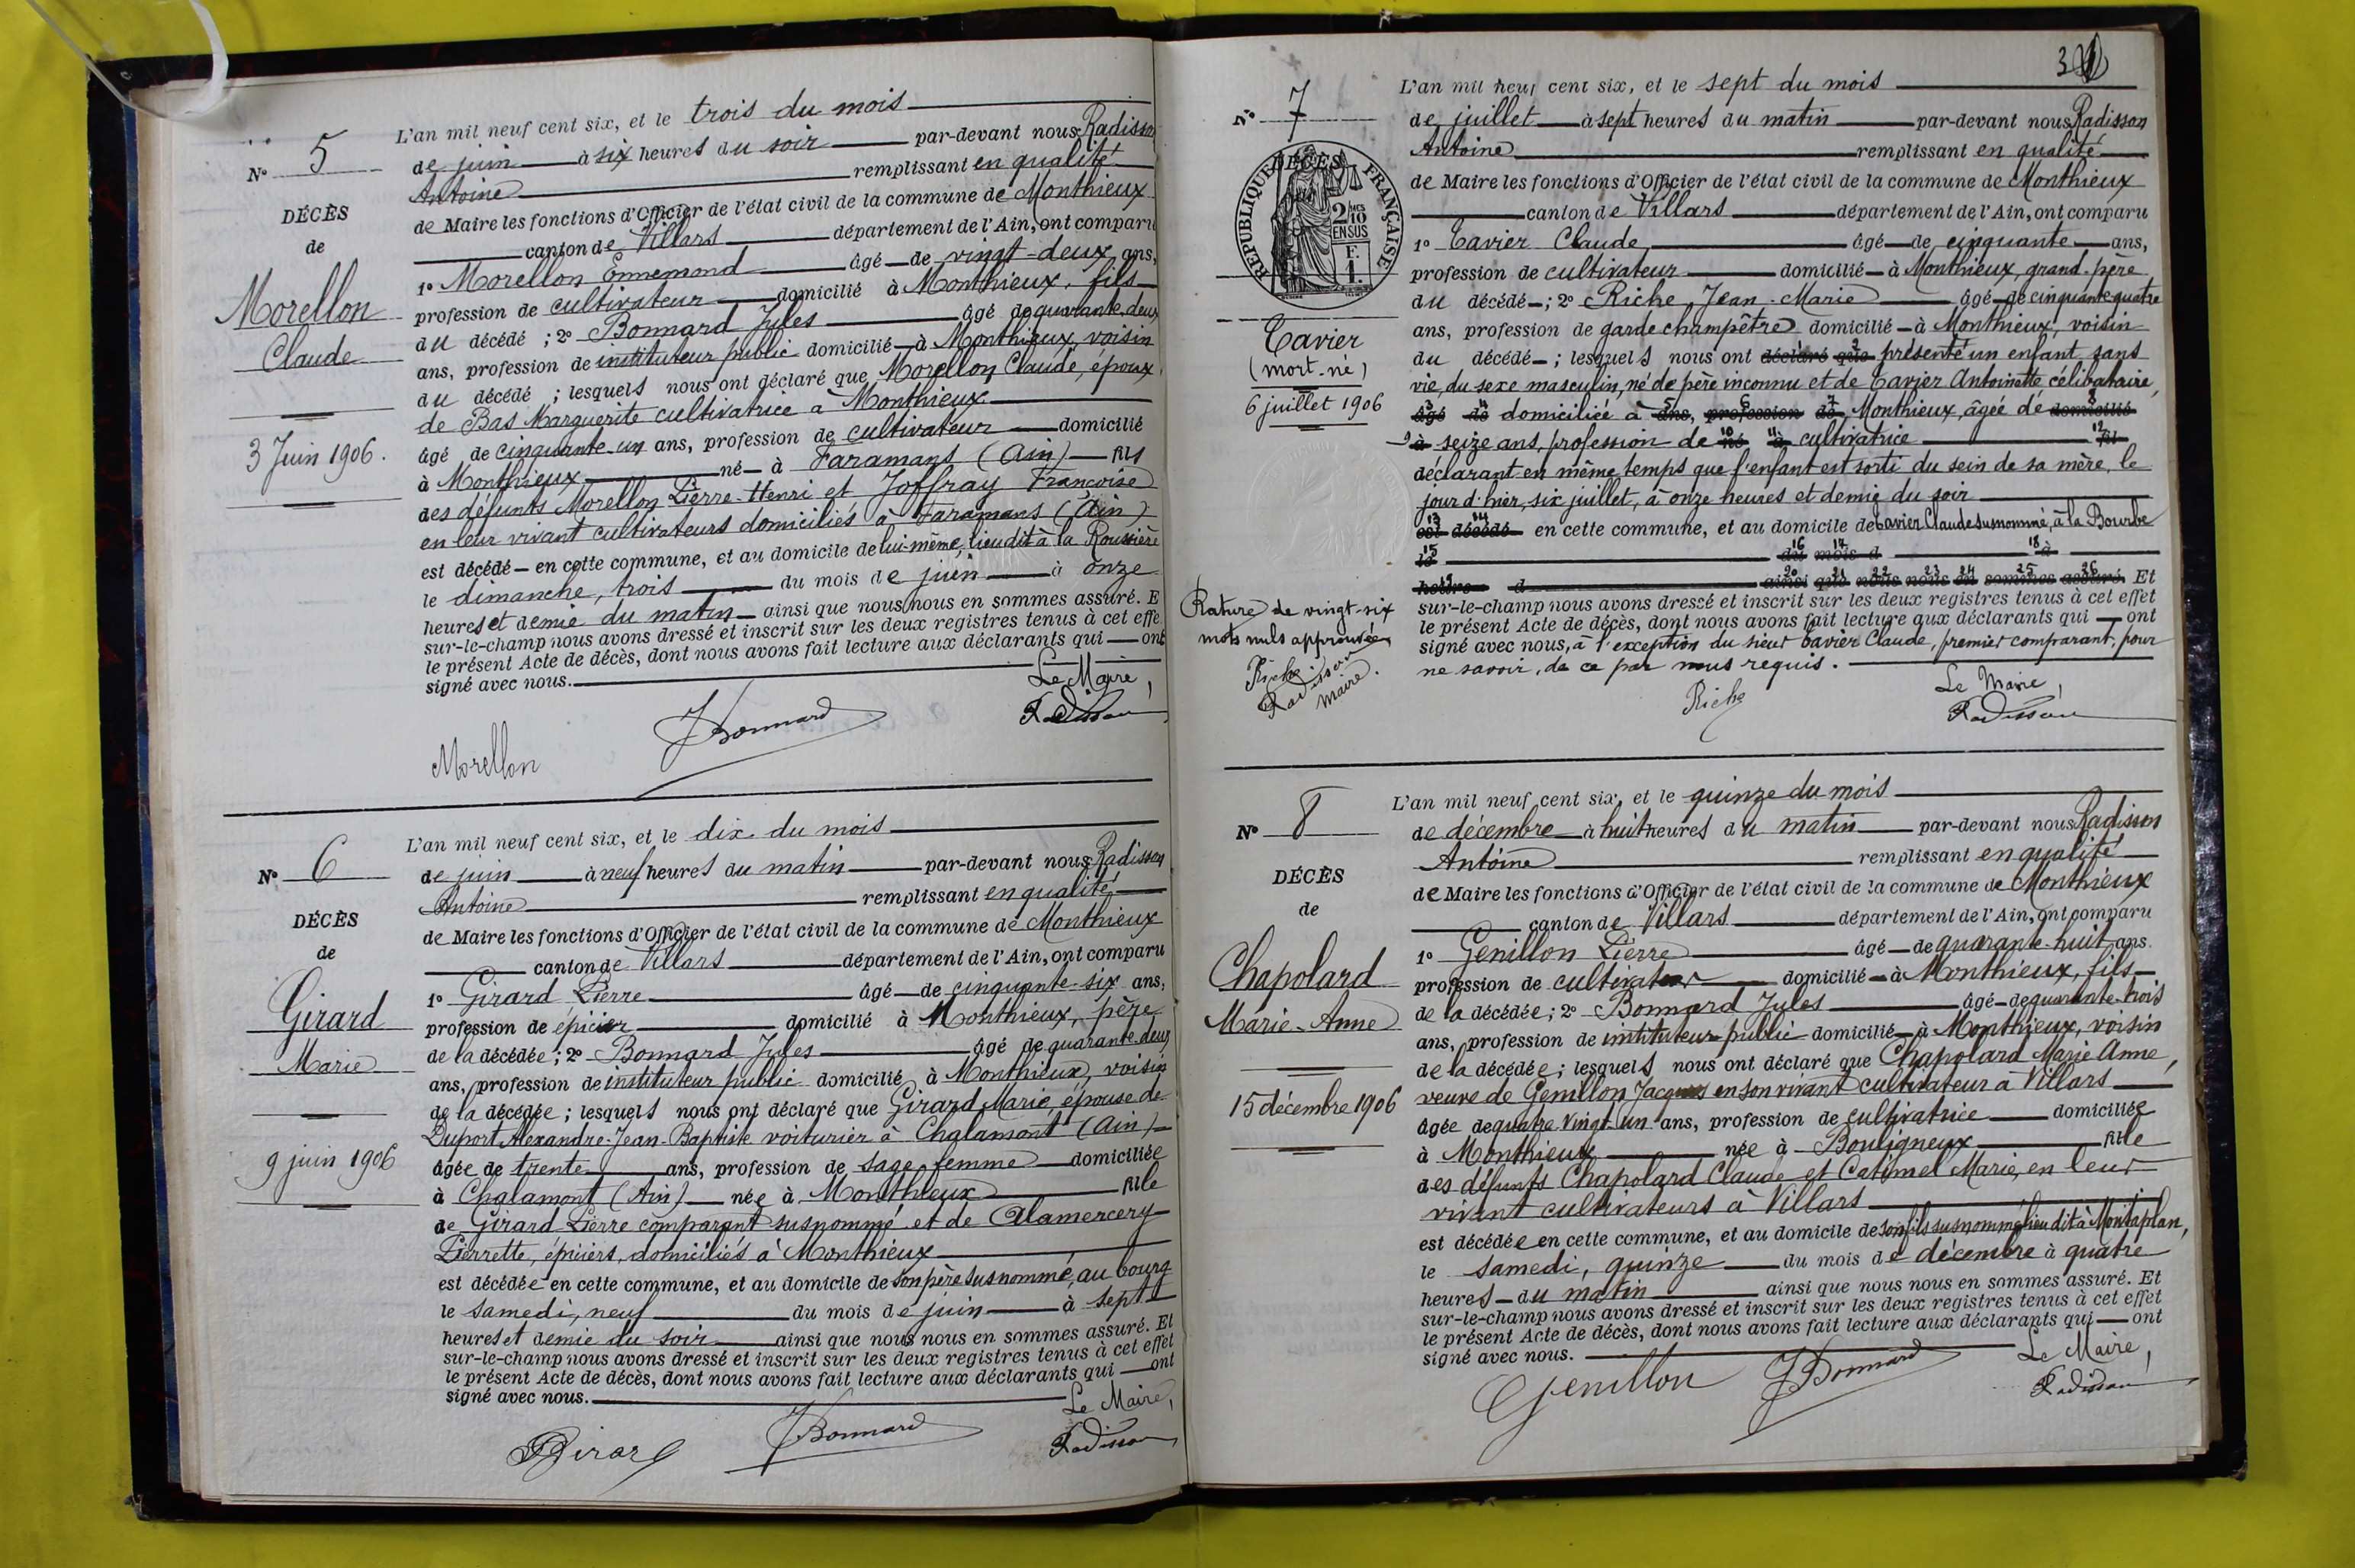 N° 5
DÉCÈS
de
Morellon
Claude
3 Juin 1906.
L'an mil neuf cent six, et le trois du mois
de juin à six heures du soir par-devant nous Radisson
Antoine remplissant en qualité
de Maire les fonctions d'Officier de l'état civil de la commune de Monthieux
canton de Villars département de l'Ain, ont comparu
1° Morellon Ennemond âgé de vingt-deux ans,
profession de cultivateur domicilié à Monthieux, fils
du décédé ; 2° Bonnard Jules âgé de quarante deux
ans, profession de instituteur public domicilié à Monthieux, voisin
du décédé ; lesquels nous ont déclaré que Morellon Claude, époux
de Bas Marguerite cultivatrice à Monthieux
âgé de cinquante-un ans, profession de cultivateur domicilié
à Monthieux né à Faramans (Ain) fils
des défunts Morellon Pierre-Henri et Joffray Françoise
en leur vivant cultivateurs domiciliés à Faramans (Ain)
est décédé en cette commune, et au domicile de lui-même, lieu dit à la Roussière
le dimanche, trois du mois de juin à onze
heures et demie du matin ainsi que nous nous en sommes assuré. E
sur-le-champ nous avons dressé et inscrit sur les deux registres tenus à cet effe
le présent Acte de décès, dont nous avons fait lecture aux déclarants qui ont
signé avec nous.
Le Maire,
Morellon JBonnard Radisson
N° 6
DÉCÈS
de
Girard
Marie
9 juin 1906
L'an mil neuf cent six, et le dix du mois
de juin à neuf heures du matin par-devant nous Radisson
Antoine remplissant en qualité
de Maire les fonctions d'Officier de l'état civil de la commune de Monthieux
canton de Villars département de l'Ain, ont comparu
1° Girard Pierre âgé de cinquante-six ans,
profession de épicier domicilié à Monthieux, père
de la décédée ; 2° Bonnard Jules âgé de quarante-deux
ans, profession de instituteur public domicilié à Monthieux, voisin
de la décédée ; lesquels nous ont déclaré que Girard Marie, épouse de
Duport Alexandre-Jean-Baptiste voiturier à Chalamont (Ain)
âgée de trente ans, profession de sage femme domiciliée
à Chalamont (Ain) née à Monthieux fille
de Girard Pierre comparant susnommé et de Alamercery
Pierrette, épiciers, domiciliés à Monthieux
est décédée en cette commune, et au domicile de son père susnommé, au bourg
le samedi, neuf du mois de juin à sept
heures et demie du soir ainsi que nous nous en sommes assuré. Et
sur-le-champ nous avons dressé et inscrit sur les deux registres tenus à cet effet
le présent Acte de décès, dont nous avons fait lecture aux déclarants qui ont
signé avec nous.
Le Maire,
PGirard JBonnard Radisson
3
N° 7
RÉPUBLIQUE FRANÇAISE
DÉCÈS
2/10 MES
EN SUS
F.
1.
Tavier
(mort-né)
6 juillet 1906
Rature de vingt-six
mots nuls approuvée
Riche
Radisson
maire.
L'an mil neuf cent six, et le sept du mois
de juillet à sept heures du matin par-devant nous Radisson
Antoine remplissant en qualité
de Maire les fonctions d'Officier de l'état civil de la commune de Monthieux
canton de Villars département de l'Ain, ont comparu
1° Tavier Claude âgé de cinquante ans,
profession de cultivateur domicilié à Monthieux, grand-père
du décédé ; 2° Riche Jean-Marie âgé de cinquante-quatre
ans, profession de garde champêtre domicilié à Monthieux, voisin
du décédé ; lesquels nous ont déclaré que 2 présenté un enfant sans
vie, du sexe masculin, né de père inconnu et de Tavier Antoinette célibataire,
3 âgé 4 de domiciliée à 5 ans, 6 profession 7 de Monthieux, âgée de 8 domicilié
9 à seize ans, profession de 10 né 11 à cultivatrice 12 fil
déclarant en même temps que l'enfant est sorti du sein de sa mère, le
jour d'hier, six juillet, à onze heures et demie du soir
13 est 14 décédé en cette commune, et au domicile de Tavier Claude susnommé, à la Bourbe
15 le 16 du 17 mois d 18 à
19 heure d 20 ainsi 21 que 22 nous 23 nous 24 en 25 sommes 26 assuré. Et
sur-le-champ nous avons dressé et inscrit sur les deux registres tenus à cet effet
le présent Acte de décès, dont nous avons fait lecture aux déclarants qui ont
signé avec nous, à l'exception du sieur Tavier Claude, premier comparant, pour
ne savoir, de ce par nous requis.
Le Maire,
Riche Radisson
N° 8
DÉCÈS
de
Chapolard
Marie-Anne
15 décembre 1906
L'an mil neuf cent six, et le quinze du mois
de décembre à huit heures du matin par-devant nous Radisson
Antoine remplissant en qualité
de Maire les fonctions d'Officier de l'état civil de la commune de Monthieux
canton de Villars département de l'Ain, ont comparu
1° Genillon Pierre âgé de quarante-huit ans.
profession de cultivateur domicilié à Monthieux, fils
de la décédée ; 2° Bonnard Jules âgé de quarante-trois
ans, profession de instituteur public domicilié à Monthieux, voisin
de la décédée ; lesquels nous ont déclaré que Chapolard Marie Anne,
veuve de Genillon Jacques en son vivant cultivateur à Villars
âgée de quatre-vingt-un ans, profession de cultivatrice domiciliée
à Monthieux née à Bouligneux fille
des défunts Chapolard Claude et Catimel Marie, en leur
vivant cultivateurs à Villars
est décédée en cette commune, et au domicile de son fils susnommé, lieu dit à Montaplan,
le samedi, quinze du mois de décembre à quatre
heures du matin ainsi que nous nous en sommes assuré. Et
sur-le-champ nous avons dressé et inscrit sur les deux registres tenus à cet effet
le présent Acte de décès, dont nous avons fait lecture aux déclarants qui ont
signé avec nous.
Le Maire,
Genillon JBonnard Radisson